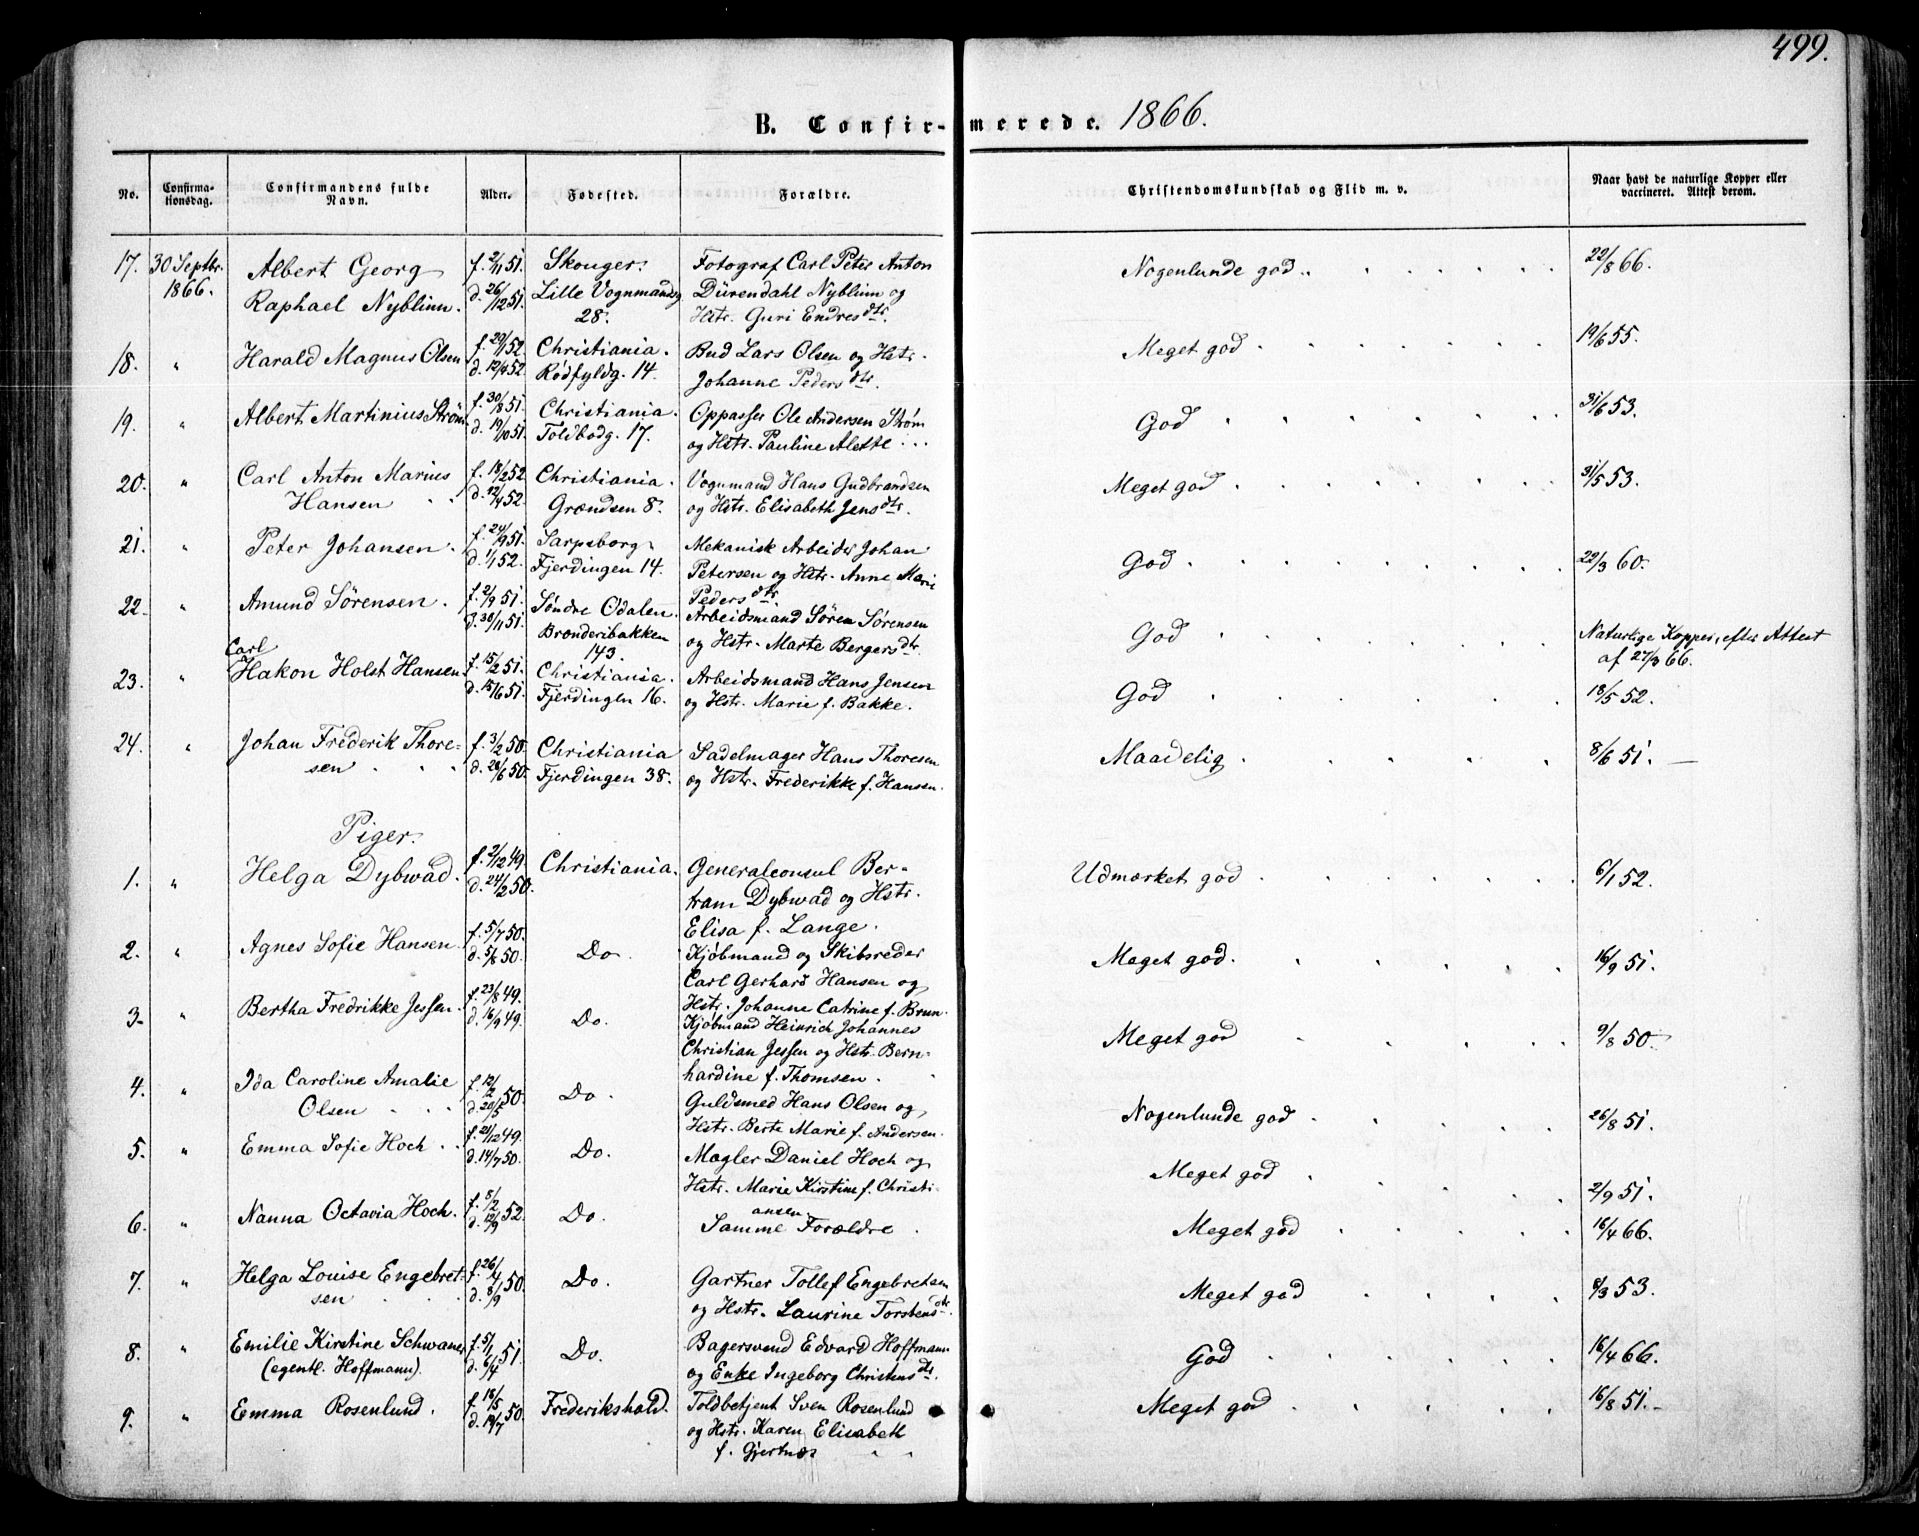 499.
B. Confirmerede. 1866.
No.
Confirmationsdag.
Confirmandens fulde Navn.
Alder.
Fødested.
Forældre.
Christendomskundskab og Flid m. v.
Naar havt de naturlige Kopper eller vaccineret. Attest derom.
17. 30 Septbr. 1866. Albert Georg Raphael Nyblinn. f. 2/1 51. d. 26/12 51. Skouger. Lille Vognmandsg. 28. Fotograf Carl Peter Anton Dürendahl Nyblinn og Hstr. Guri Endresdtr. Nogenlunde god. 22/8 66.
18. " Harald Magnus Olsen f. 29/1 52. d. 12/4 52. Christiania. Rødfyldg. 14. Bud Lars Olsen og Hstr. Johanne Pedersdtr. Meget god 19/6 55.
19. " Albert Martinius Strøm f. 30/8 51. d. 19/10 51. Christiania. Toldbodg. 17. Oppasser Ole Andersen Strøm og Hstr. Pauline Alette God 31/6 53.
20. " Carl Anton Marius Hansen f. 18/2 52. d. 12/4 52. Christiania. Grændsen 8. Vognmand Hans Gudbrandsen og Hstr. Elisabeth Jensdtr. Meget god 31/5 53.
21. " Peter Johansen. f. 24/9 51. d. 1/1 52. Sarpsborg. Fjerdingen 14. Mekanisk Arbeider Johan Petersen og Hstr. Anne Marie Pedersdtr. God 22/3 60.
22. " Amund Sørensen. f. 2/9 51. d. 30/11 51. Søndre Odalen. Brænderibakken 143. Arbeidsmand Søren Sørensen og Hstr. Marte Bergersdtr. God Naturlige Kopper, efter Attest af 27/3 66.
23. " Carl Hakon Holst Hansen f. 15/2 51. d. 15/6 51. Christiania. Fjerdingen 16. Arbeidsmand Hans Jensen og Hstr. Marie f. Bakke. God 18/5 52.
24. " Johan Frederik Thoresen f. 3/2 50. d. 28/6 50. Christiania Fjerdingen 38. Sadelmager Hans Thoresen og Hstr. Frederikke f. Hansen. Maadelig 8/6 51.
Piger.
1. " Helga Dybwad. f. 2/12 49. d. 24/2 50. Christiania. Generalconsul Bertram Dybwad og Hstr. Elisa f. Lange. Udmærket god 6/1 52.
2. " Agnes Sofie Hansen. f. 5/7 50. d. 5/8 50. Do. Kjøbmand og Skibsreder Carl Gerhard Hansen og Hstr. Johanne Catrine f. Brun. Meget god. 16/9 51.
3. " Bertha Fredrikke Jessen. f. 23/8 49. d. 16/9 49. Do. Kjøbmand Heinrich Johannes Christian Jessen og Hstr. Bernhardine f. Thomsen. Meget god 9/8 50.
4. " Ida Caroline Amalie Olsen f. 12/2 d. 20/5 50. Do. Guldsmed Hans Olsen og Hstr. Berte Marie f. Andersen. Nogenlunde god 26/8 51.
5. " Emma Sofie Hoch f. 21/12 49. d. 14/7 50. Do. Mægler Daniel Hoch og Hstr. Marie Kirstine f. Christiansen. Meget god 2/9 51.
6. " Nanna Octavia Hoch. f. 8/2 d. 12/9 52. Do. Samme Forældre Meget god 16/4 66.
7. " Helga Louise Engebretsen f. 26/4 d. 8/9 50. Do. Gartner Tollef Engebretsen og Hstr. Laurine Torstensdtr. Meget god 8/3 53.
8. " Emilie Kirstine Schwaner (egentl. Hoffmann). f. 5/1 d. 6/4 51. Do. Bagersvend Edvard Hoffmann og Enke Ingeborg Christensdtr. God 16/4 66.
9. " Emma Rosenlund. f. 18/5 d. 14/7 50. Frederikshald. Toldbetjent Sven Rosenlund og Hstr. Karen Elisabeth f. Gjertnæs Meget god 16/8 51.